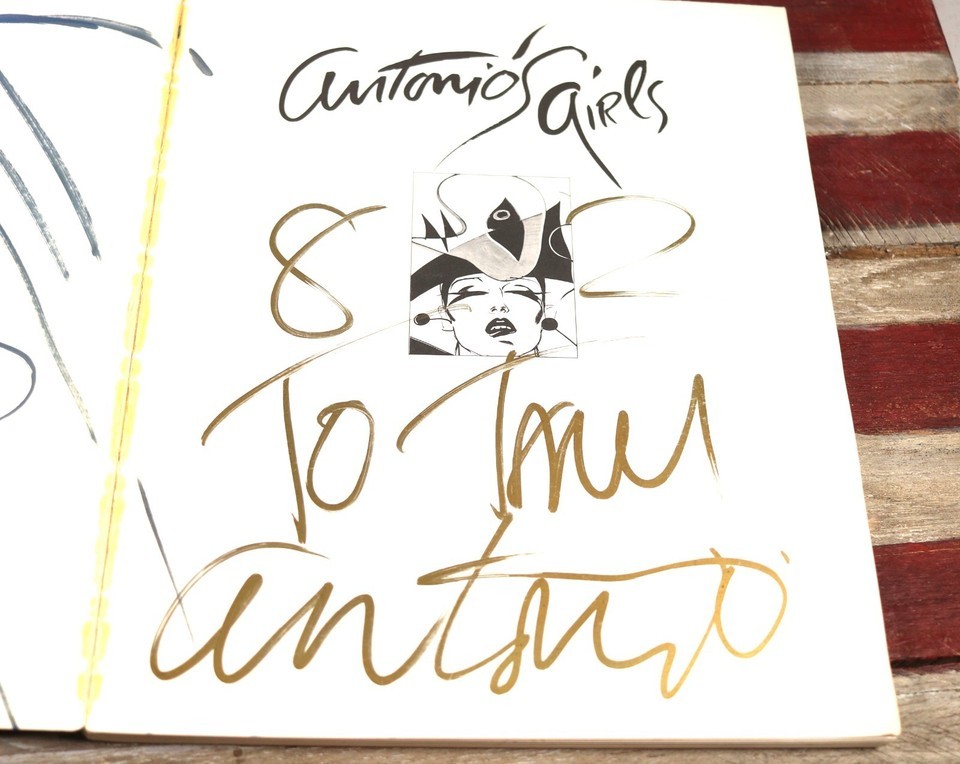 Antonio's Girls
8 2
To
Antonio